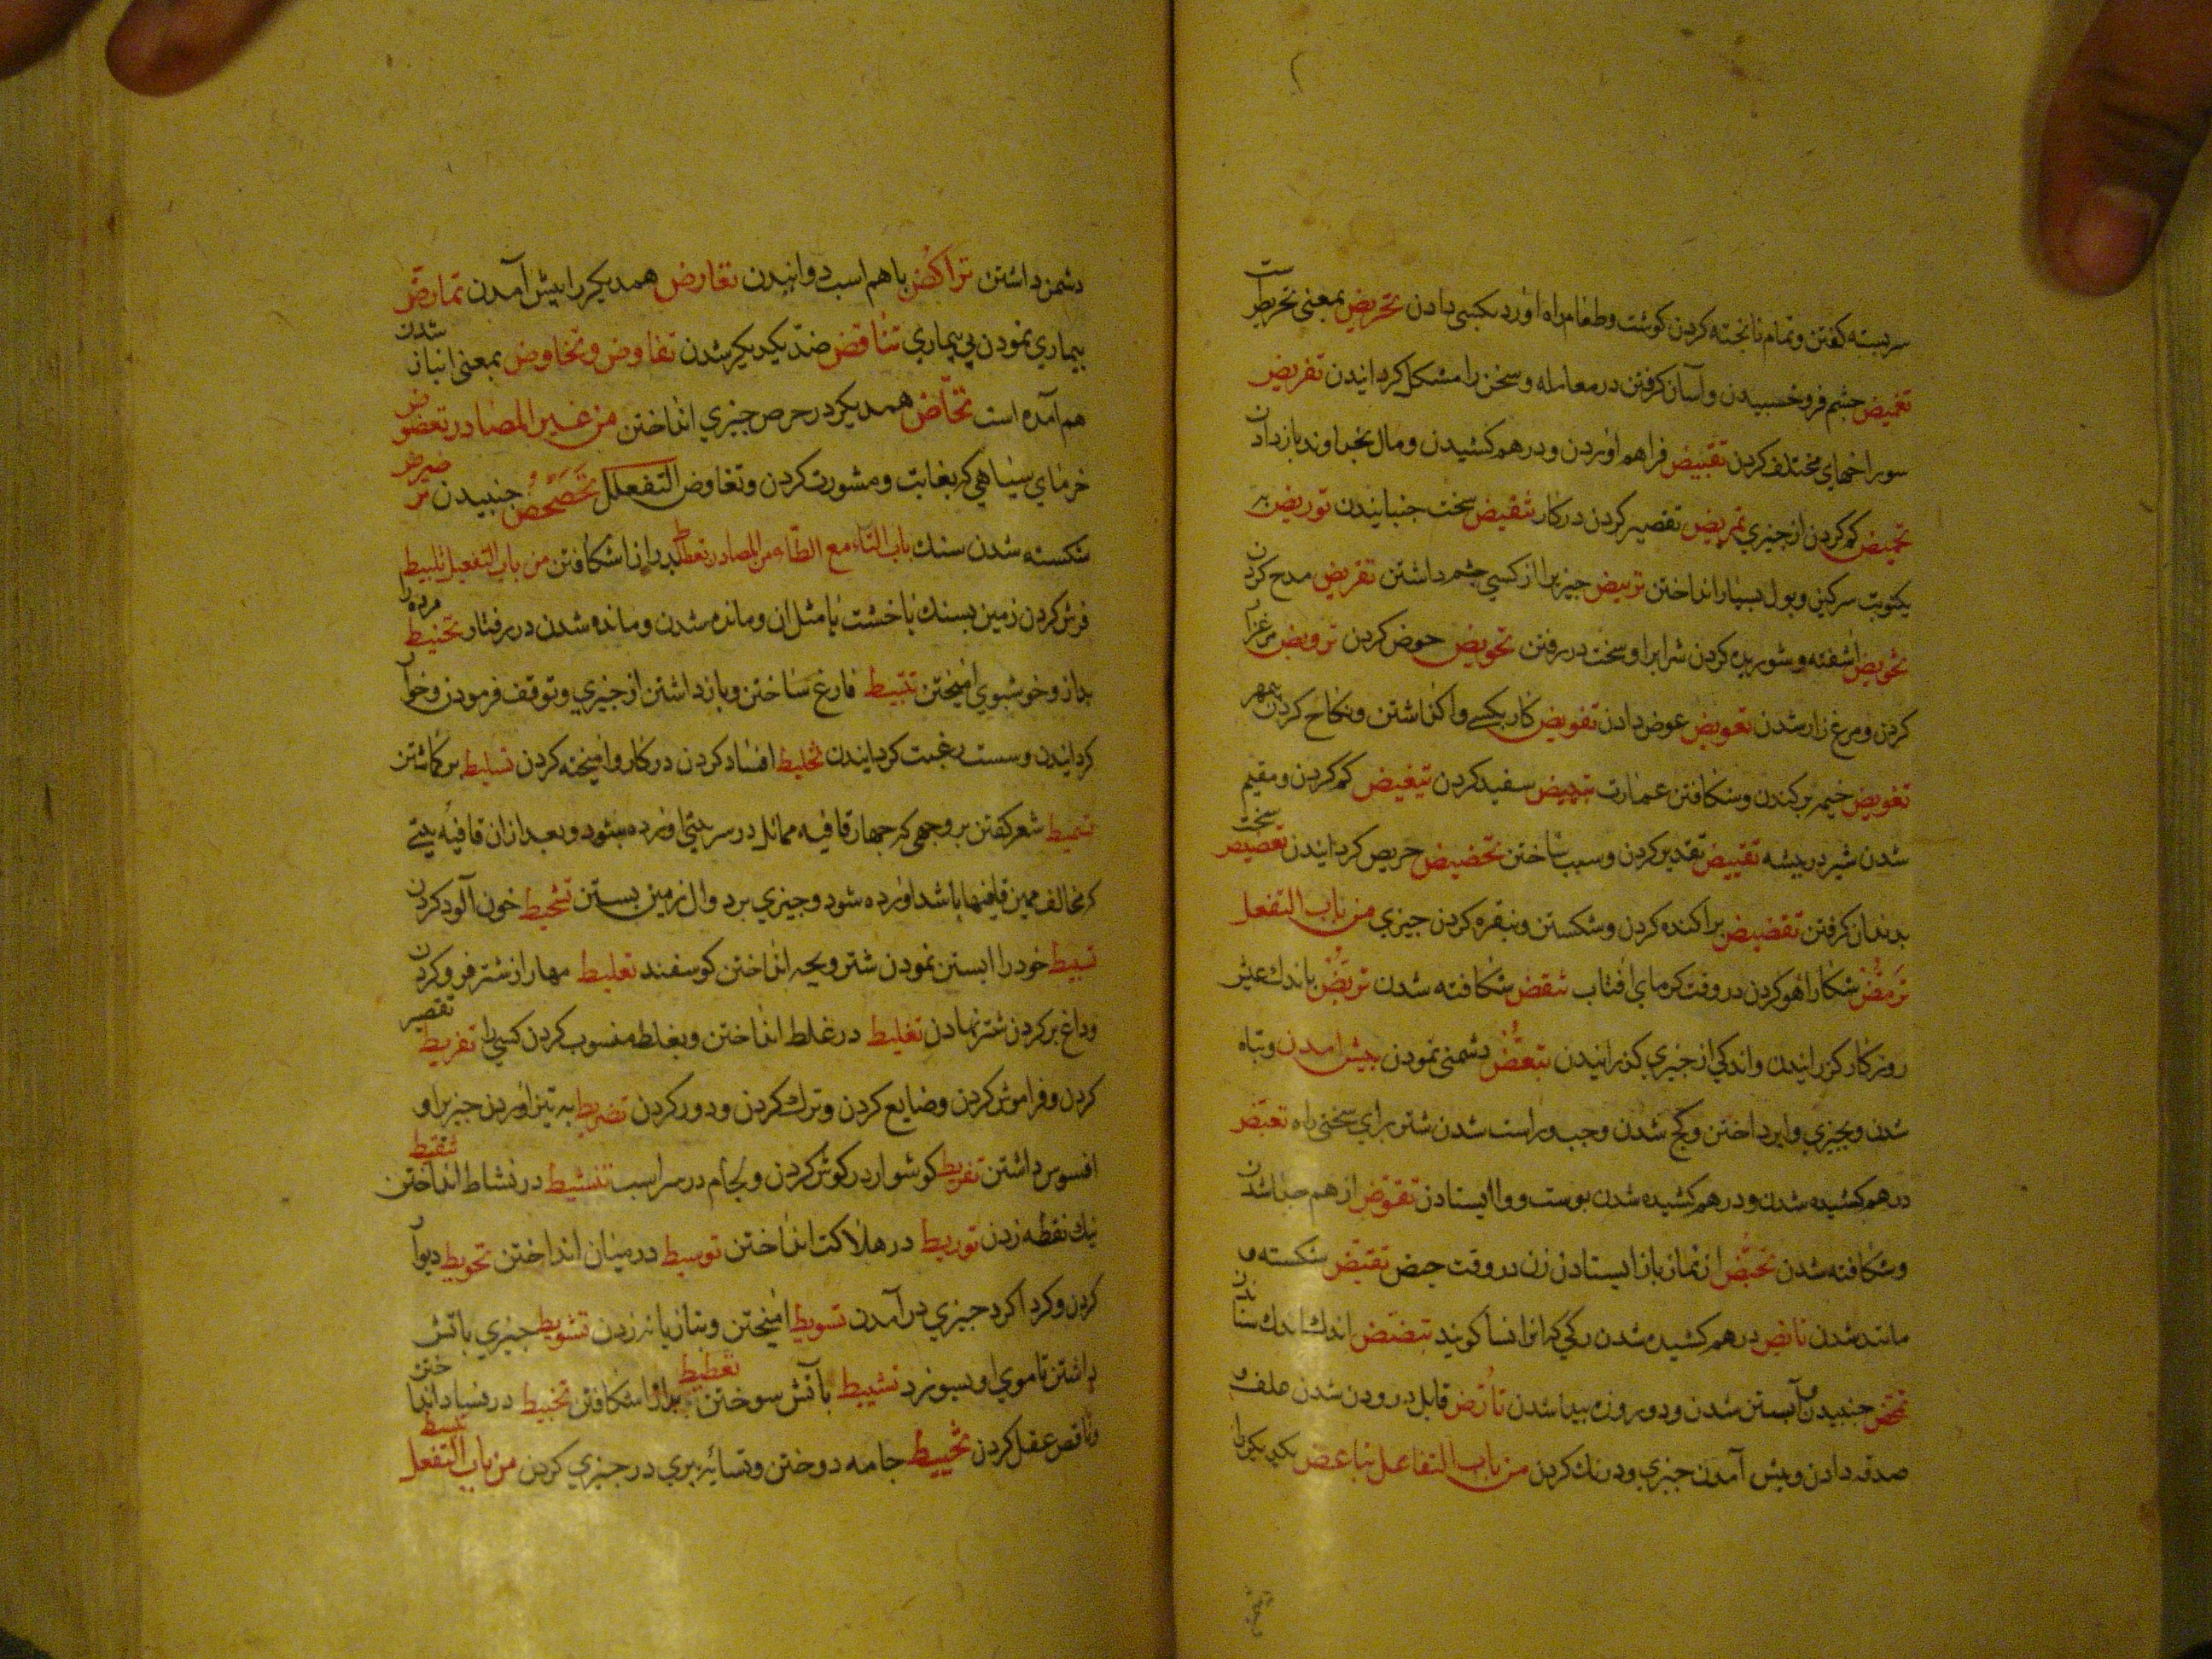 سربسته کفتن و تمام ناپخته کردن کوشت و طعام راه اورد بکسی دادن تحریض بمعنی تحریص است
تغمیض جشم فرو خسبیدن و آسان کرفتن در معامله و سخن را مشکل کردانیدن تفریض
سوراخهای مختلف کردن تقبیض فراهم اوردن و درهم کشیدن و مال بخداوند باز دادن
کم کردن از جیزی تمریض تقصیر کردن در کار سخت جنبانیدن توریض به
یکنوبت سرکین و بول بسیار انداختن تربیض جیزیرا از کسی جشم داشتن تقریض مدح کردن
اشفته و شوریده کردن شرابرا و سخت در رفتن تحویض حوض کردن ترویض مرغزار
کردن و مرغزار شدن تعویض عوض دادن تفویض کار بکسی واکذاشتن و نکاح کردن بیمهر
خیمه برکندن و شکافتن عمارت تبییض سفید کردن تغییض کم کردن و مقیم
شدن شیر در بیشه تقییض تقدیر کردن و سبب ساختن تحضیض حریص کردانیدن تعضیض سخت
بدندان کرفتن تقضیض پراکنده کردن و شکستن و بنقره کردن جیزی من باب التفعل
ترمض شکار اهو کردن در وقت کرمای افتاب تنقض شکافته شدن تربض باندک عیش
روزکار کزرانیدن و اندکی از جیزی کزرانیدن تبغض دشمنی نمودن پیش امدن و تباه
شدن و بجیزی وا پرداختن و کج شدن و جب و راست شدن شتر برای سختی راه
درهم کشیده شدن و درهم کشیده شدن پوست و وا ایستادن تقوض از هم جدا شدن
و شکافته شدن تحیض از نماز باز ایستادن زن در وقت حیض تقیض شکسته و
مانند شدن درهم کشیده شدن رکی که انرا نسا کویند تبضض اندک اندک ستاندن
جنبیدن و آبستن شدن و دو روزه پیدا شدن تارض قابل درودن شدن علف و
صدقه دادن و پیش آمدن جیزی و درنک کردن من باب التفاعل تباغض یکدیکر را
دشمن داشتن تراکض باهم اسب دوانیدن تعارض همدیکر را پیش آمدن تمارض
بیماری نمودن بی بیماری تناقض ضد یکدیکر شدن تفاوض و تخاوض بمعنی انباز شدن
هم آمده است تحاض همدیکر در حرص جیزی انداختن من غیر المصادر تعضوض
خرمای سیاهی که بغایت و مشورت کردن و تفاوض التفعلل جنبیدن
شکسته شدن سنک باب التاء مع الطاء من المصادر شکافتن من باب التفعیل تبلیط
فرش کردن زمین بسنک یا خشت یا مثل ان و مانده شدن و مانده شدن در رفتار تحنیط مرده را
و خوشبوی امیختن تثبیط فارغ ساختن و باز داشتن از جیزی و توقف فرمودن و خوار
کردانیدن و سست رغبت کردانیدن تخلیط افساد کردن در کار و امیخته کردن تسلیط برکماشتن
تسمیط شعر کفتن بر وجهی که جهار قافیه مماثل در سر بیتی اورده بشود و بعد ازان قافیه بیتی
که مخالف همین قافیها باشد اورده شود و جیزی بر دوال زین بستن تشحیط خون آلود کردن
خود را ابستن نمودن شتر و بچه انداختن کوسفند تعلیط مهار از شتر فرو کردن
و داغ بر کردن شتر نهادن تغلیط در غلط انداختن و بغلط منسوب کردن کسی را تفریط تقصیر
کردن و فراموش کردن و ضایع کردن و ترک کردن و دور کردن تضریط به تیز اوردن جیزیرا و
افسوس داشتن تقریط کوشوار در کوش کردن و لجام در سر اسب تنشیط در نشاط انداختن تنقیط
نیک نقطه زدن توریط در هلاکت انداختن توسیط در میان انداختن تحویط دیوار
کردن و کرداکرد جیزی در آمدن تسویط امیختن و بتازیانه زدن تشویط جیزی باتش
داشتن تا موی او بسوزد تشییط بآتش سوختن تعطیط شکافتن تخبیط در فساد انداختن
و ناقص عقل کردن تخییط جامه دوختن و در جیزی کردن من باب التفعل تبسط